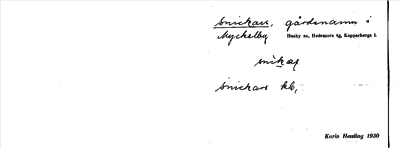 Snickars, gårdsnamn i
Nyckelby Husby sn, Hedemora tg, Kopparbergs l.
snikas
Snickars kb,
Karin Henling 1930